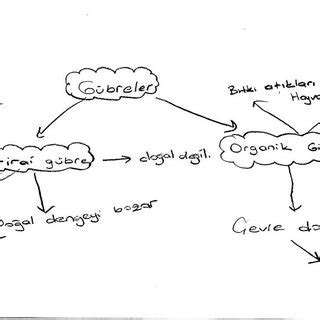 Gübreler
Bitki atıkları
Hayva
irai gübre
doğal değil.
Organik Gü
Doğal dengeyi bozar
Çevre do